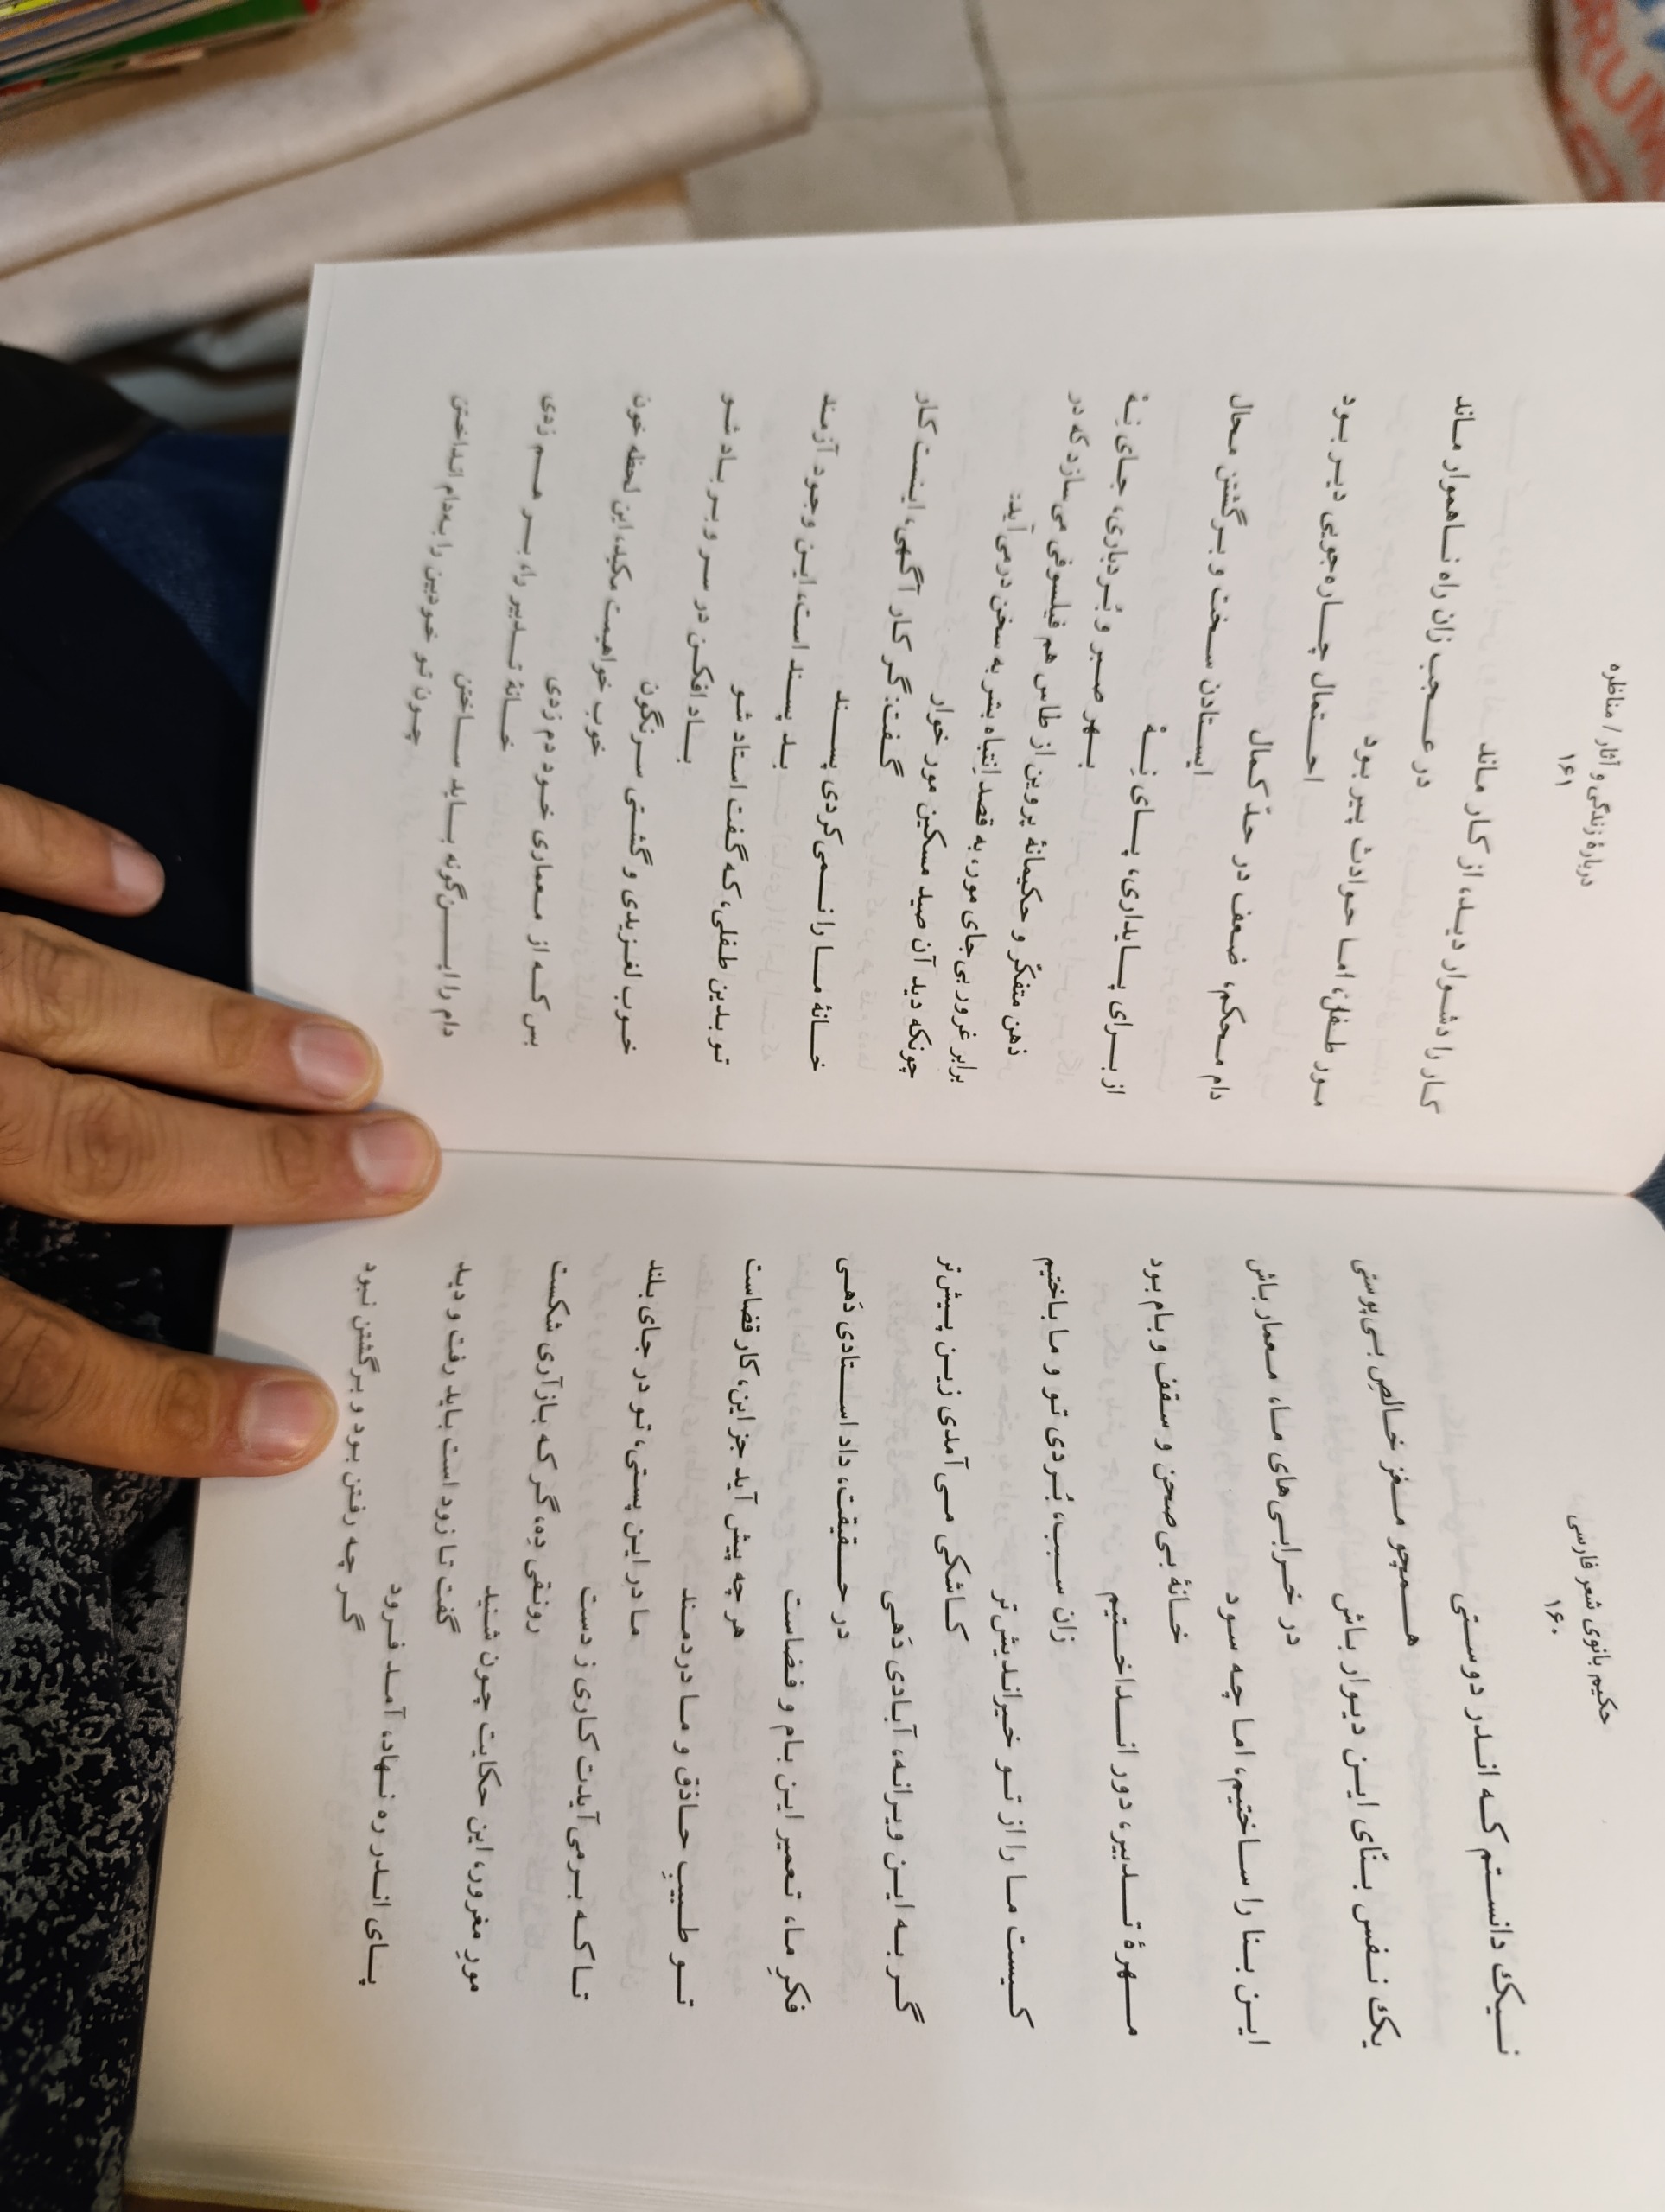 حکیم بانوی شعر فارسی
۱۶۰
نـیک دانستم کـه انـدر دوستی
همچو مـغز خـالصِ بـی‌پوستی
یک نـفس بنّای ایـن دیـوار باش
در خـرابی‌های مـا، مـعمار باش
ایـن بـنا را سـاختیم، اما چه سود
خـانهٔ بی‌صحن و سقف و بام بود
مـهرهٔ تـدبیر، دور انـداخـتیم
زان سـبب، بُردی تو و ما باختیم
کـیست مـا را از تـو خیراندیش‌تر
کـاشکی مـی‌آمدی زیـن پـیش‌تر
گـر بـه ایـن ویـرانـه، آبـادی دَهـی
در حـقیقت، داد اسـتادی دَهـی
فکرِ مـا، تـعمیر ایـن بـام و فـضاست
هر چه پیش آید جز این، کار قضاست
تـو طـبیبِ حـاذق و مـا دردمـند
مـا در این پستی، تـو در جای بلند
تـا کـه بـرمی‌آیدت کاری ز دست
رونـقی دِه، گر کـه بازآری شکست
مورِ مغرور، این حکایت چون شنید
گفت تا زود است باید رفت و دیـد
پـای انـدر ره نـهاد، آمـد فـرود
گـر چـه رفتن بود و برگشتن نـبود
دربارهٔ زندگی و آثار / مناظره
۱۶۱
کـار را دشـوار دیـد، از کـار مـاند
در عـجب زان راه نـاهموار مـاند
مـور طـفل، امـا حـوادث پـیر بـود
احـتمال چـاره‌جویی دیـر بـود
دام مـحکم، ضـعف در حـدّ کـمال
ایستادن سـخت و بـرگشتن محال
از بـرای پـایداری، پـای نـهٔ
بـهر صـبر و بُـردباری، جـای نـهٔ
ذهن متفکّر و حکیمانهٔ پروین از طاس هم فیلسوفی می‌سازد که در
برابر غرور بی‌جای مور، به قصد اِنتباه بشر به سخن درمی‌آید:
چونکه دید آن صید مسکین مور خوار
گـفت: گـر کار آگهی، اینست کار
خـانهٔ مـا را نـمی‌کردی پـسند
بـد پـسند است، ایـن وجـود آزمـند
تو بـدین طـفلی، که گفت استاد شو
بـاد افکـن در سـر و بـر بـاد شـو
خـوب لغـزیدی و گشـتی سـرنگون
خوب خواهیمت مکید، این لحظه خون
بس کـه از مـعماری خـود دم زدی
خـانهٔ تـدبیر را، بـر هـم زدی
دام را ایـن‌گونه بـاید سـاختن
چـون تـو خودبین را به‌دام انداختن